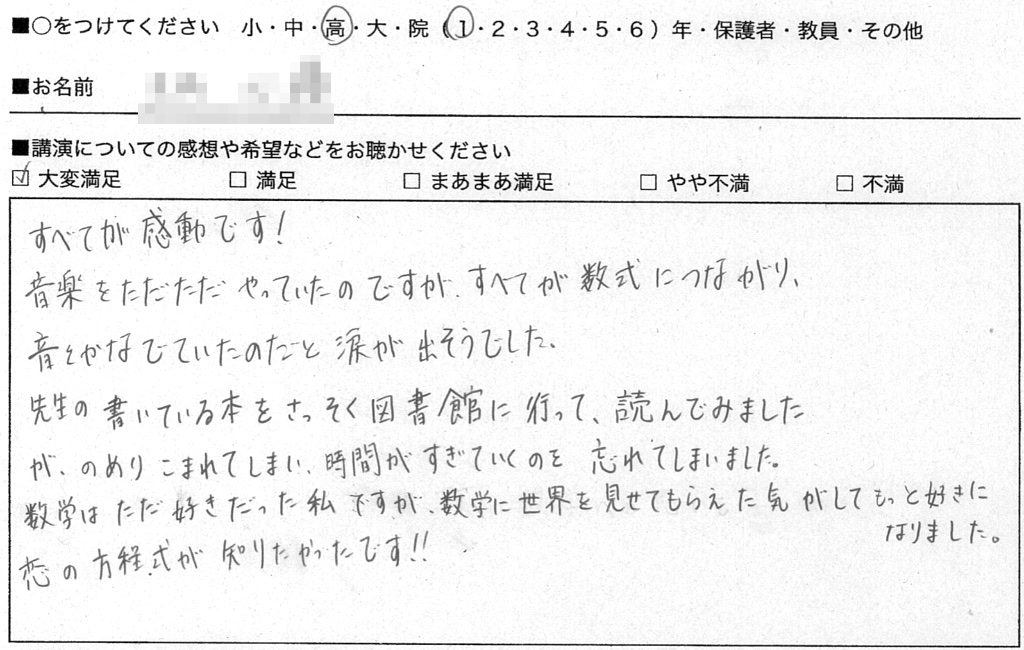 ■○をつけてください 小・中・高・大・院（1・2・3・4・5・6）年・保護者・教員・その他
■お名前
■講演についての感想や希望などをお聴かせください
☑ 大変満足 □ 満足 □ まあまあ満足 □ やや不満 □ 不満
すべてが感動です！
音楽をただただやっていたのですが、すべてが数式につながり、
音をかなでていたのだと涙が出そうでした。
先生の書いている本をさっそく図書館に行って、読んでみました
が、のめりこまれてしまい、時間がすぎていくのを忘れてしまいました。
数学はただ好きだった私ですが、数学に世界を見せてもらえた気がしてもっと好きに
なりました。
恋の方程式が知りたかったです!!